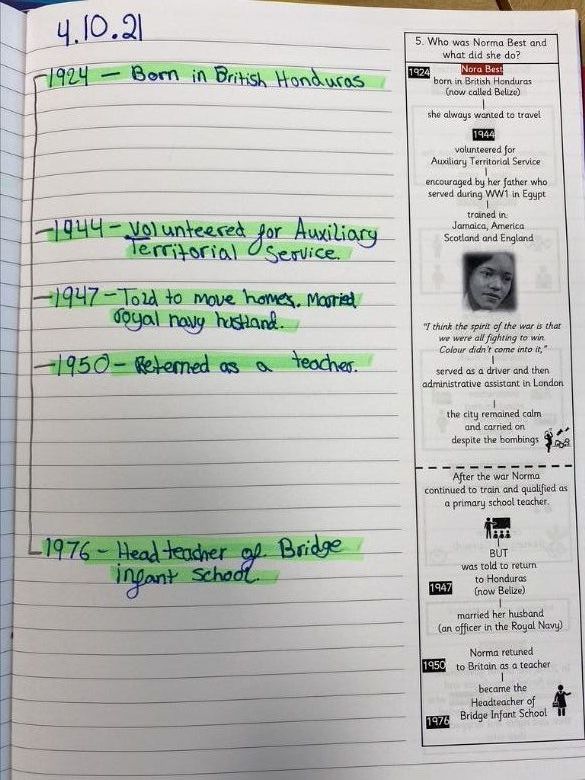 4.10.21
1924 - Born in British Honduras
1944 - Volunteered for Auxiliary
Territorial Service.
1947 - Told to move homes. Married
royal navy husband.
1950 - Reterned as a teacher.
1976 - Head teacher of Bridge
infant school.
5. Who was Norma Best and
what did she do?
1924 Nora Best
born in British Honduras
(now called Belize)
she always wanted to travel
1944
volunteered for
Auxiliary Territorial Service
encouraged by her father who
served during WW1 in Egypt
trained in
Jamaica, America
Scotland and England
"I think the spirit of the war is that
we were all fighting to win.
Colour didn't come into it,"
served as a driver and then
administrative assistant in London
the city remained calm
and carried on
despite the bombings
After the war Norma
continued to train and qualified as
a primary school teacher.
BUT
was told to return
to Honduras
1947 (now Belize)
married her husband
(an officer in the Royal Navy)
Norma retuned
1950 to Britain as a teacher
became the
Headteacher of
1976 Bridge Infant School